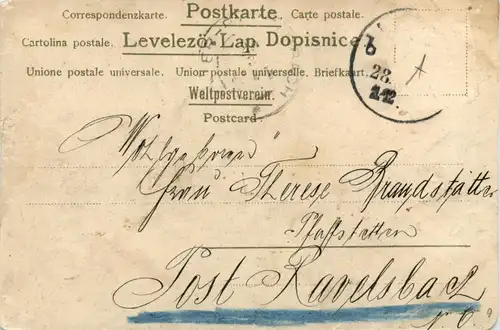 Correspondenzkarte. Postkarte. Carte postale.
Cartolina postale. Levelező-Lap. Dopisnice
Unione postale universale. Union postale universelle. Briefkaart.
Weltpostverein.
Postcard.
b
28.
12.
Wohlgeboren
Frau Therese Brandstätter
Pfaffstetten
Post Ravelsbach
N. Ö.